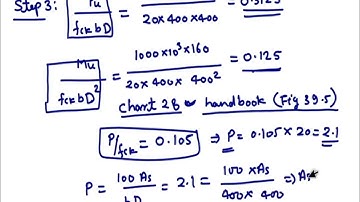 Step 3: Pu / fck bD = / 20 x 400 x 400 = 0.3125
Mu / fck bD² = 1000 x 10³ x 160 / 20 x 400 x 400² = 0.125
chart 28 - handbook (Fig 39.5)
P/fck = 0.105 ⇒ P = 0.105 x 20 = 2.1
P = 100 As / bD = 2.1 = 100 x As / 400 x 400 ⇒ As